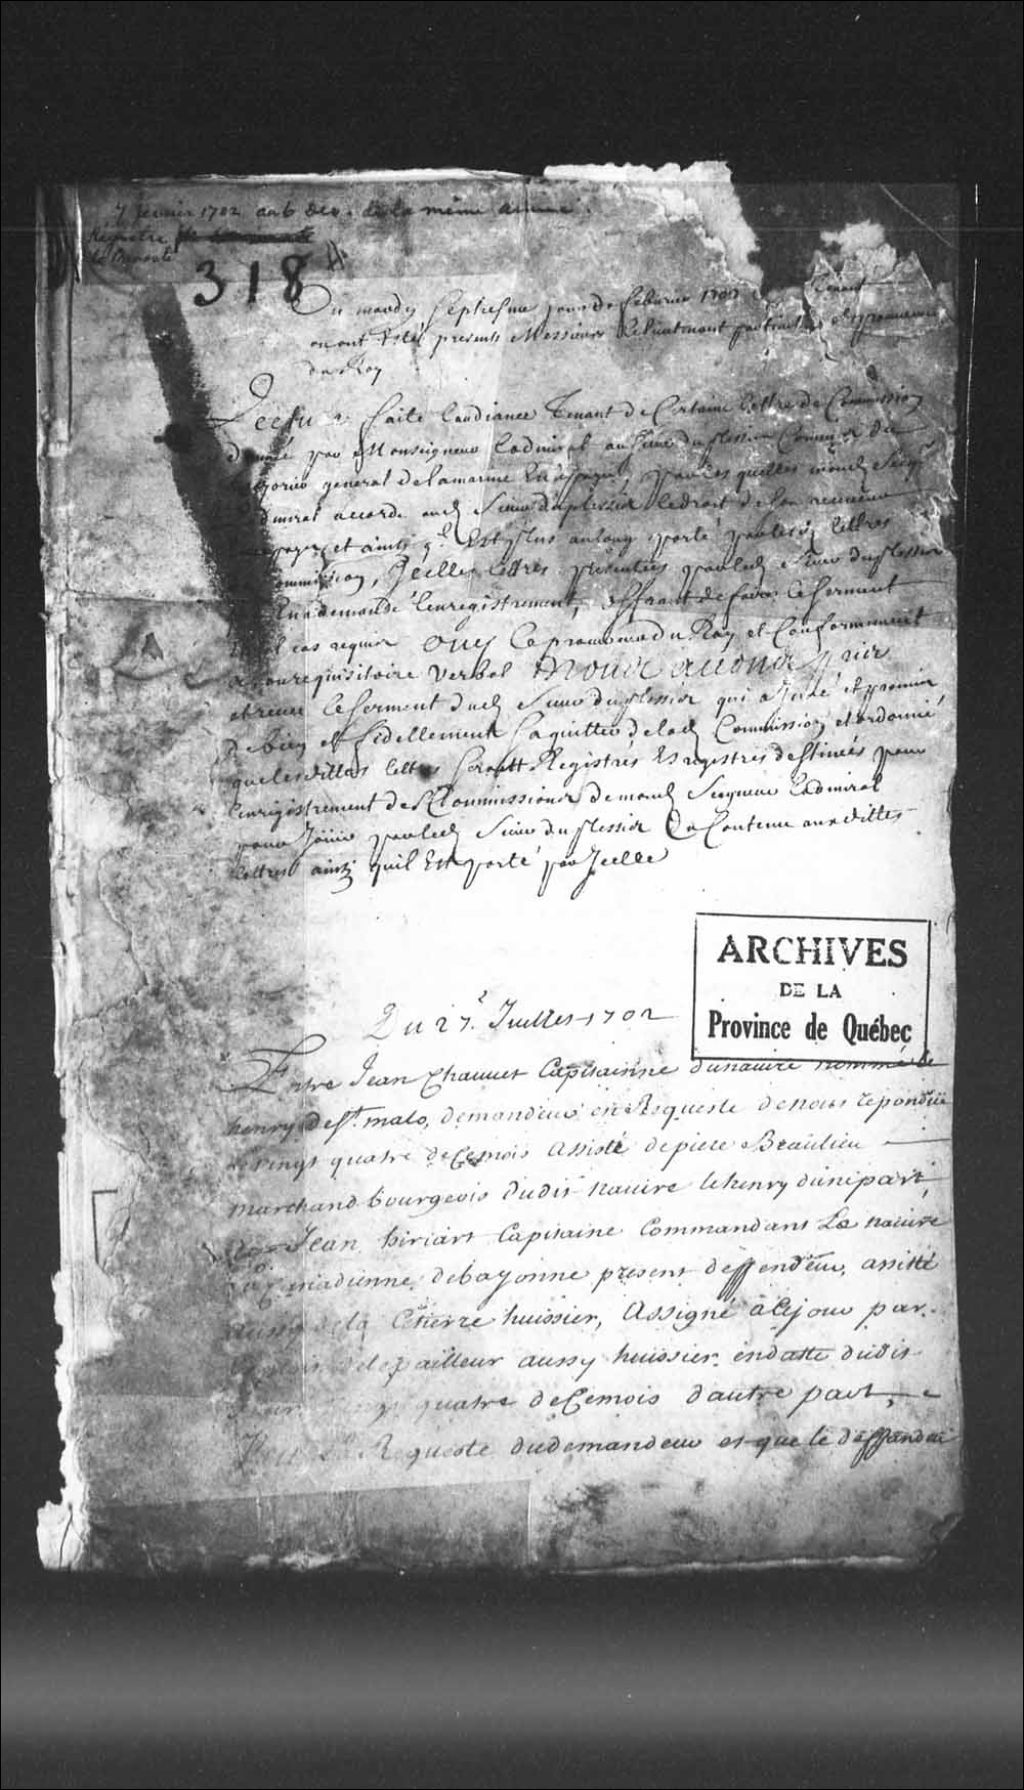 7 février 1702 au 6 dec. de la même année.
Registre
318
Du mardy septiesme jour de febvrier 1702 Tenant
ou ont esté presents Messieurs Le lieutenant particulier et procureur
du Roy
Lecture faite Laudiance Tenant de Certaine lettre de Commission
donnée par Monseigneur Ladmiral au sieur duplessis Commis du
general de la marine En Espagne, par lesquelles mond. Seigr
admiral accorde aud Sieur duplessis le droit de
et ainsi ql Est plus au long porté par les d lettres
Commission, Jcelles lettres presentées par led Sieur duplessis
Enademandé lenregistrement, offrant de faire le serment
cas requis ouy Le procureur du Roy et Conformement
a son requisitoire Verbal nous auons pris
et receu le serment dud Sieur duplessis qui a juré et promis
de bien et fidellement saquitter de lad Commission, et ordonné
que lesdittes lettres seront Registrés Es registres destinés pour
lenregistrement des Commissions de mond Seigneur Ladmiral
pour Joüir par led Sieur duplessis du Contenu aux dittes
lettres ainsy quil Est porté par Jcelle
ARCHIVES
DE LA
Province de Québec
Du 27e Juillet 1702
Entre Jean Chauuet Capitainne du nauire nommé le
henry de St malo, demandeur en Requeste de nous repondüe
vingt quatre de Cemois assisté de piere Beaulieu
marchand bourgeois dudit nauire le henry dune part,
Jean hiriart Capitaine Commandant La nauire
de bayonne present deffendeur, assisté
aussy de la Cherre huissier, Assigné à Cejour par
aussy huissier en datte dudit
quatre de Cemois dautre part,
Requeste dudemandeur et que le deffandeur